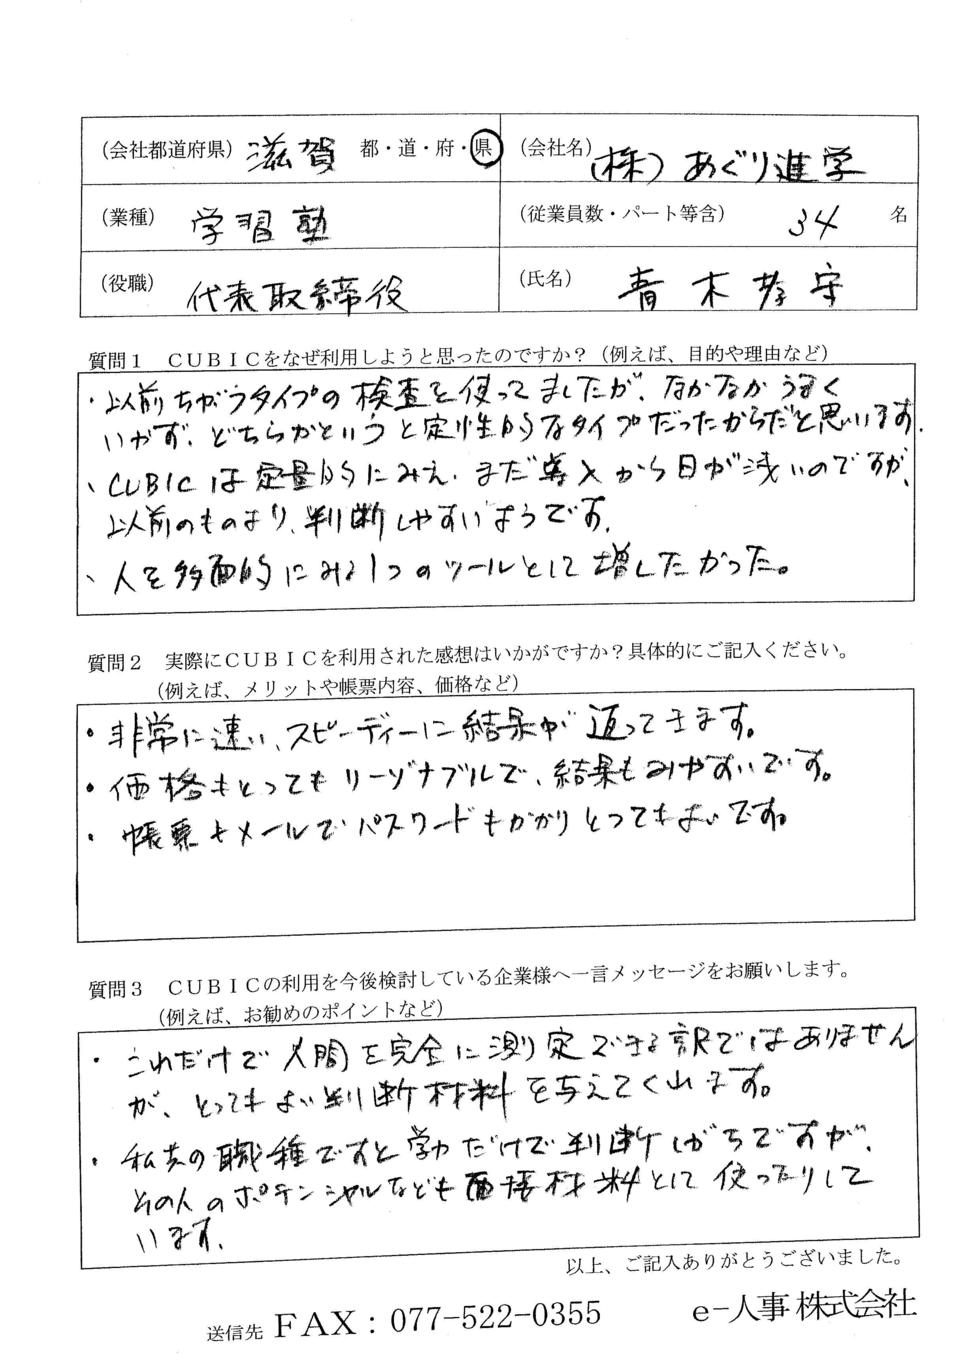 (会社都道府県) 滋賀 都・道・府・県 (会社名) (株) あぐり進学
(業種) 学習塾 (従業員数・パート等含) 34 名
(役職) 代表取締役 (氏名) 青木孝守
質問1 CUBICをなぜ利用しようと思ったのですか?(例えば、目的や理由など)
・以前ちがうタイプの検査を使ってましたが、なかなかうまく
いかず、どちらかというと定性的なタイプだったからだと思います。
、CUBICは定量的にみえ、まだ導入から日が浅いのですが、
以前のものより、判断しやすいようです。
、人を多面的にみる1つのツールとして増したかった。
質問2 実際にCUBICを利用された感想はいかがですか?具体的にご記入ください。
(例えば、メリットや帳票内容、価格など)
・非常に速い、スピーディーに結果が返ってきます。
・価格もとってもリーゾナブルで、結果もみやすいです。
・帳票もメールでパスワードもかかりとってもよいです。
質問3 CUBICの利用を今後検討している企業様へ一言メッセージをお願いします。
(例えば、お勧めのポイントなど)
・これだけで人間を完全に測定できる訳ではありません
が、とってもよい判断材料を与えてくれます。
・私共の職種ですと学力だけで判断しがちですが、
その人のポテンシャルなども面接材料として使ったりして
います。
以上、ご記入ありがとうございました。
送信先 FAX:077-522-0355 e-人事株式会社